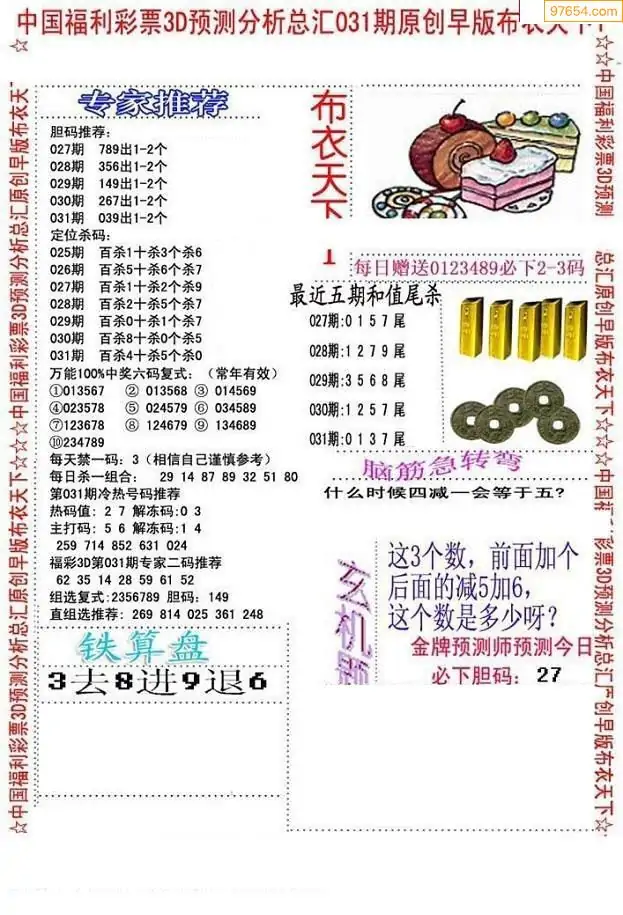 97654.com
中国福利彩票3D预测分析总汇031期原创早版布衣天下
专家推荐
胆码推荐:
027期 789出1-2个
028期 356出1-2个
029期 149出1-2个
030期 267出1-2个
031期 039出1-2个
定位杀码:
025期 百杀1十杀3个杀6
026期 百杀5十杀6个杀7
027期 百杀1十杀2个杀9
028期 百杀2十杀5个杀7
029期 百杀0十杀1个杀7
030期 百杀8十杀0个杀5
031期 百杀4十杀5个杀0
万能100%中奖六码复式:(常年有效)
①013567 ②013568 ③014569
④023578 ⑤024579 ⑥034589
⑦123678 ⑧124679 ⑨134689
⑩234789
每天禁一码:3(相信自己谨慎参考)
每日杀一组合: 29 14 87 89 32 51 80
第031期冷热号码推荐
热码值:2 7 解冻码:0 3
主打码:5 6 解冻码:1 4
259 714 852 631 024
福彩3D第031期专家二码推荐
62 35 14 28 59 61 52
组选复式:2356789 胆码:149
直组选推荐:269 814 025 361 248
铁算盘
3去8进9退6
布衣天下
1
每日赠送0123489必下2-3码
最近五期和值尾杀
027期:0 1 5 7 尾
028期:1 2 7 9 尾
029期:3 5 6 8 尾
030期:1 2 5 7 尾
031期:0 1 3 7 尾
脑筋急转弯
什么时候四减一会等于五?
玄机题
这3个数,前面加个
后面的减5加6,
这个数是多少呀?
金牌预测师预测今日
必下胆码: 27
☆中国福利彩票3D预测分析总汇原创早版布衣天下☆☆☆中国福利彩票3D预测分析总汇原创早版布衣天
☆☆中国福利彩票3D预测
总汇原创早版布衣天下☆☆☆中国福
彩票3D预测分析总汇
创早版布衣天下☆☆